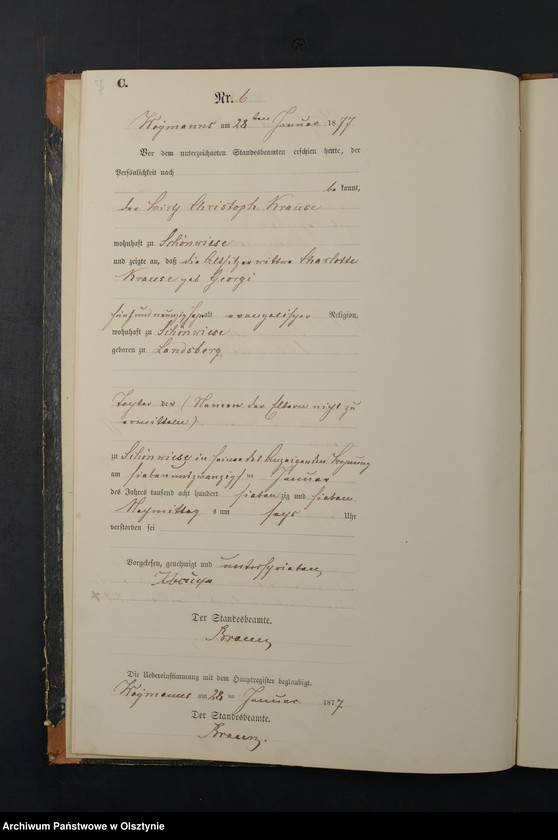 C.
Nr. 6
Woymanns am 28ten Januar 1877
Vor dem unterzeichneten Standesbeamten erschien heute, der
Persönlichkeit nach
be kannt,
der Wirth Christoph Krause
wohnhaft zu Schönwiese
und zeigte an, daß die Altsitzerwittwe Charlotte
Krause geb Georgi
fünfundneunzig Jahr alt evangelischer Religion,
wohnhaft zu Schönwiese
geboren zu Landsberg
Tochter der (Namen der Eltern nicht zu
ermitteln)
zu Schönwiese in seiner des Anzeigenden Wohnung
am siebenundzwanzigsten Januar
des Jahres tausend acht hundert siebenzig und sieben
Nachmittags um sechs Uhr
verstorben sei
Vorgelesen, genehmigt und unterschrieben
Der Standesbeamte.
Die Uebereinstimmung mit dem Hauptregister beglaubigt.
Woymanns am 28 ten Januar 1877
Der Standesbeamte.
Archiwum Państwowe w Olsztynie